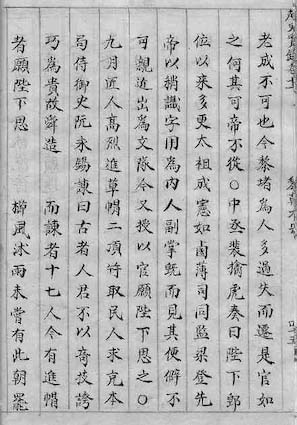 老成不可也今黎堵為人多過失而遷是官如
之何其可帝不從〇中丞裴擒虎奏曰陛下郢
位以来多更太祖成憲如鹵薄司同監梁登先
帝以稍識字用為内人副掌既而見其便僻不
可親近出為文隊今又授以官願陛下思之〇
九月近人高烈進草帽二項符取民人求充本
局侍御史阮永錫諫曰古者人君不以奇技誇
巧為貴故舜造 而諫者十七人今有進帽
者願陛下思 櫛風沐雨未嘗有此朝罷